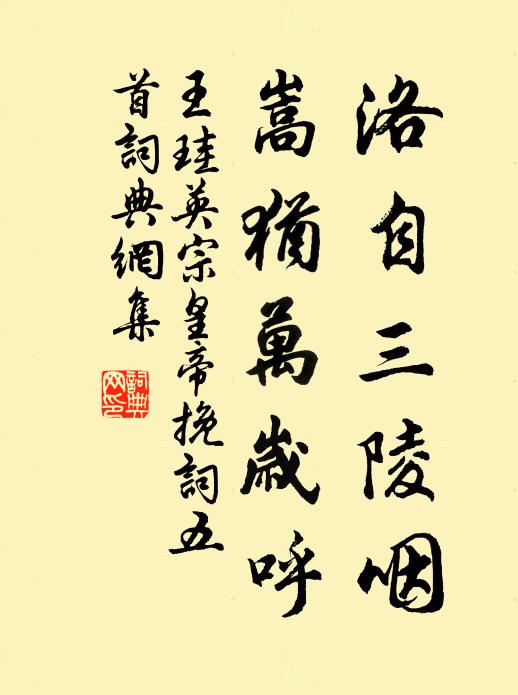 洛自三陵咽
嵩猶萬歲呼
王珪英宗皇帝挽詞五
首詞典網集
詞典
网印